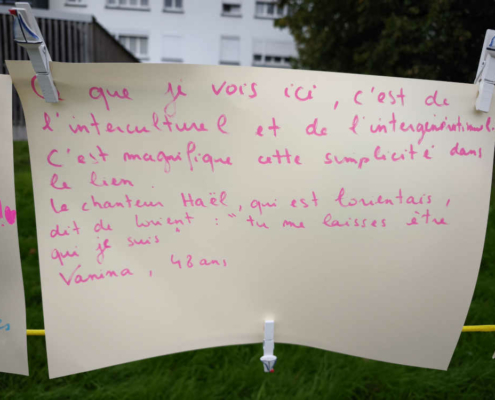 Ce que je vois ici, c'est de
l'interculturel et de l'intergénérationnel.
C'est magnifique cette simplicité dans
le lien.
Le chanteur Haël, qui est lorientais,
dit de Lorient : "tu me laisses être
qui je suis"
Vanina, 48 ans